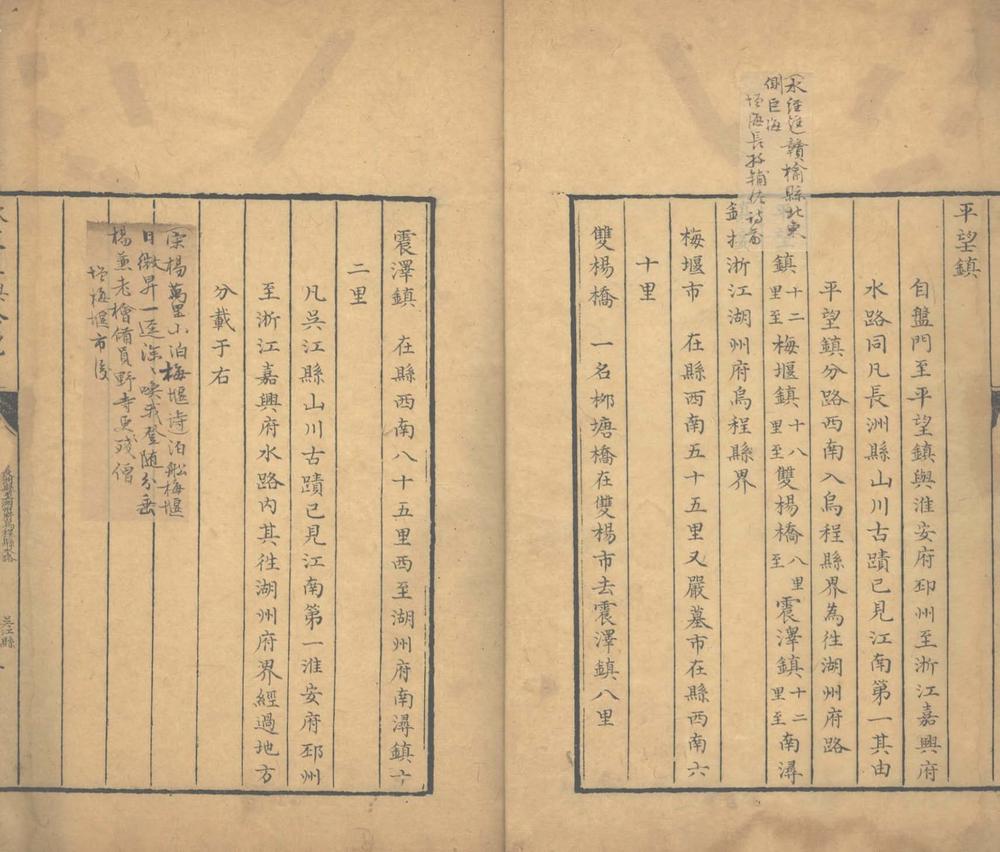 平望鎮
自盤門至平望鎮與淮安府邳州至浙江嘉興府
水路同凡長洲縣山川古蹟已見江南第一其由
平望鎮分路西南入烏程縣界為徃湖州府路
水經注贛榆縣北東
側巨海
鎮十二里至梅堰鎮十八里至雙楊橋八里至震澤鎮十二里至南潯
浙江湖州府烏程縣界
梅堰市　在縣西南五十五里又嚴墓市在縣西南六
十里
雙楊橋　一名柳塘橋在雙楊市去震澤鎮八里
震澤鎮　在縣西南八十五里西至湖州府南潯鎮十
二里
凡吳江縣山川古蹟已見江南第一淮安府邳州
至浙江嘉興府水路內其徃湖州府界經過地方
分載于右
宋楊萬里小泊梅堰詩泊船梅堰
日微昇一逕深深喚我登隨分垂
楊兼老檜備員野寺更殘僧
增梅堰市後
吳江縣